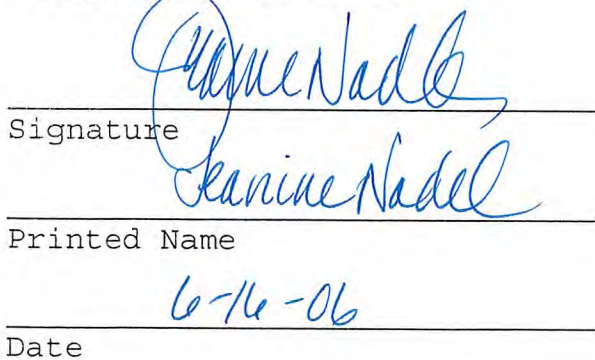 Jeanine Nadel
Signature
Jeanine Nadel
Printed Name
6-16-06
Date